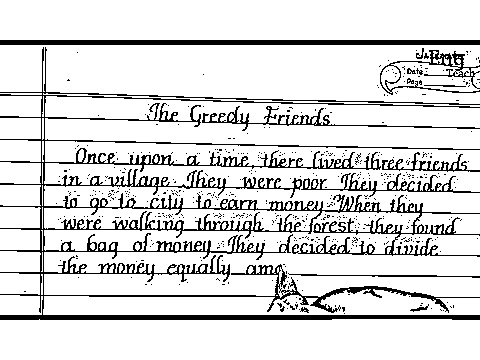 Eng
Date
Teach
Page
The Greedy Friends
Once upon a time, there lived three friends
in a village. They were poor. They decided
to go to city to earn money. When they
were walking through the forest, they found
a bag of money. They decided to divide
the money equally amo